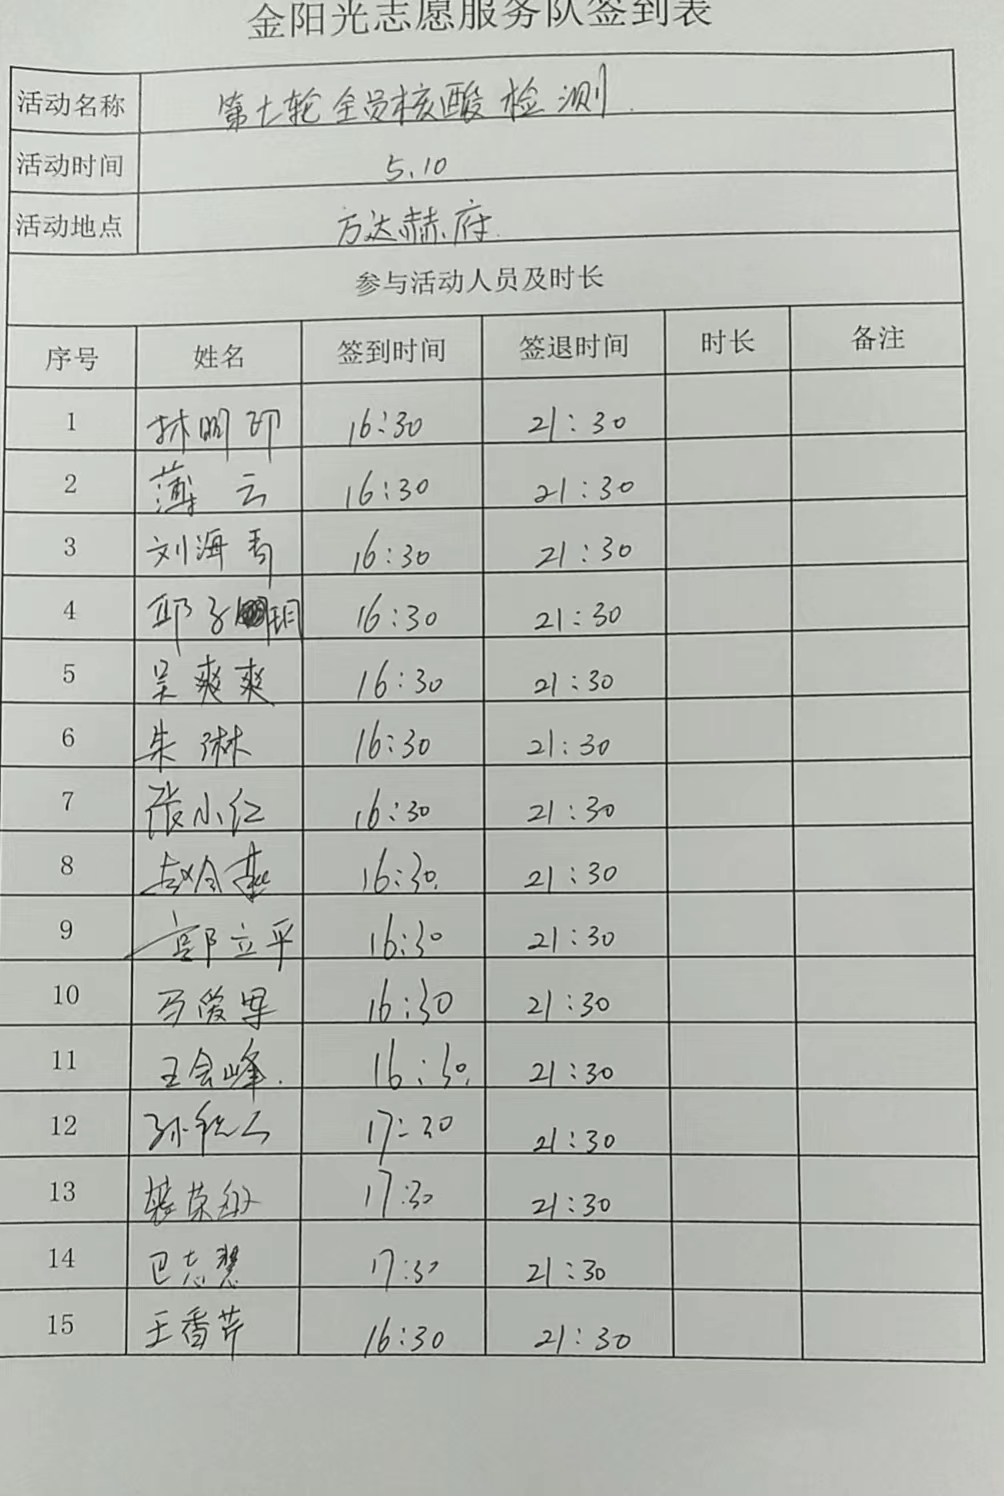 金阳光志愿服务队签到表
活动名称 第七轮全员核酸检测
活动时间 5.10
活动地点 方达赫府
参与活动人员及时长
序号 姓名 签到时间 签退时间 时长 备注
1 林明印 16:30 21:30
2 薄云 16:30 21:30
3 刘海青 16:30 21:30
4 邱子玥 16:30 21:30
5 吴爽爽 16:30 21:30
6 朱琳 16:30 21:30
7 张小红 16:30 21:30
8 赵令燕 16:30 21:30
9 郭立平 16:30 21:30
10 马爱军 16:30 21:30
11 王会峰 16:30 21:30
12 孙 17:30 21:30
13 荣敏 17:30 21:30
14 巴志慧 17:30 21:30
15 王香芹 16:30 21:30